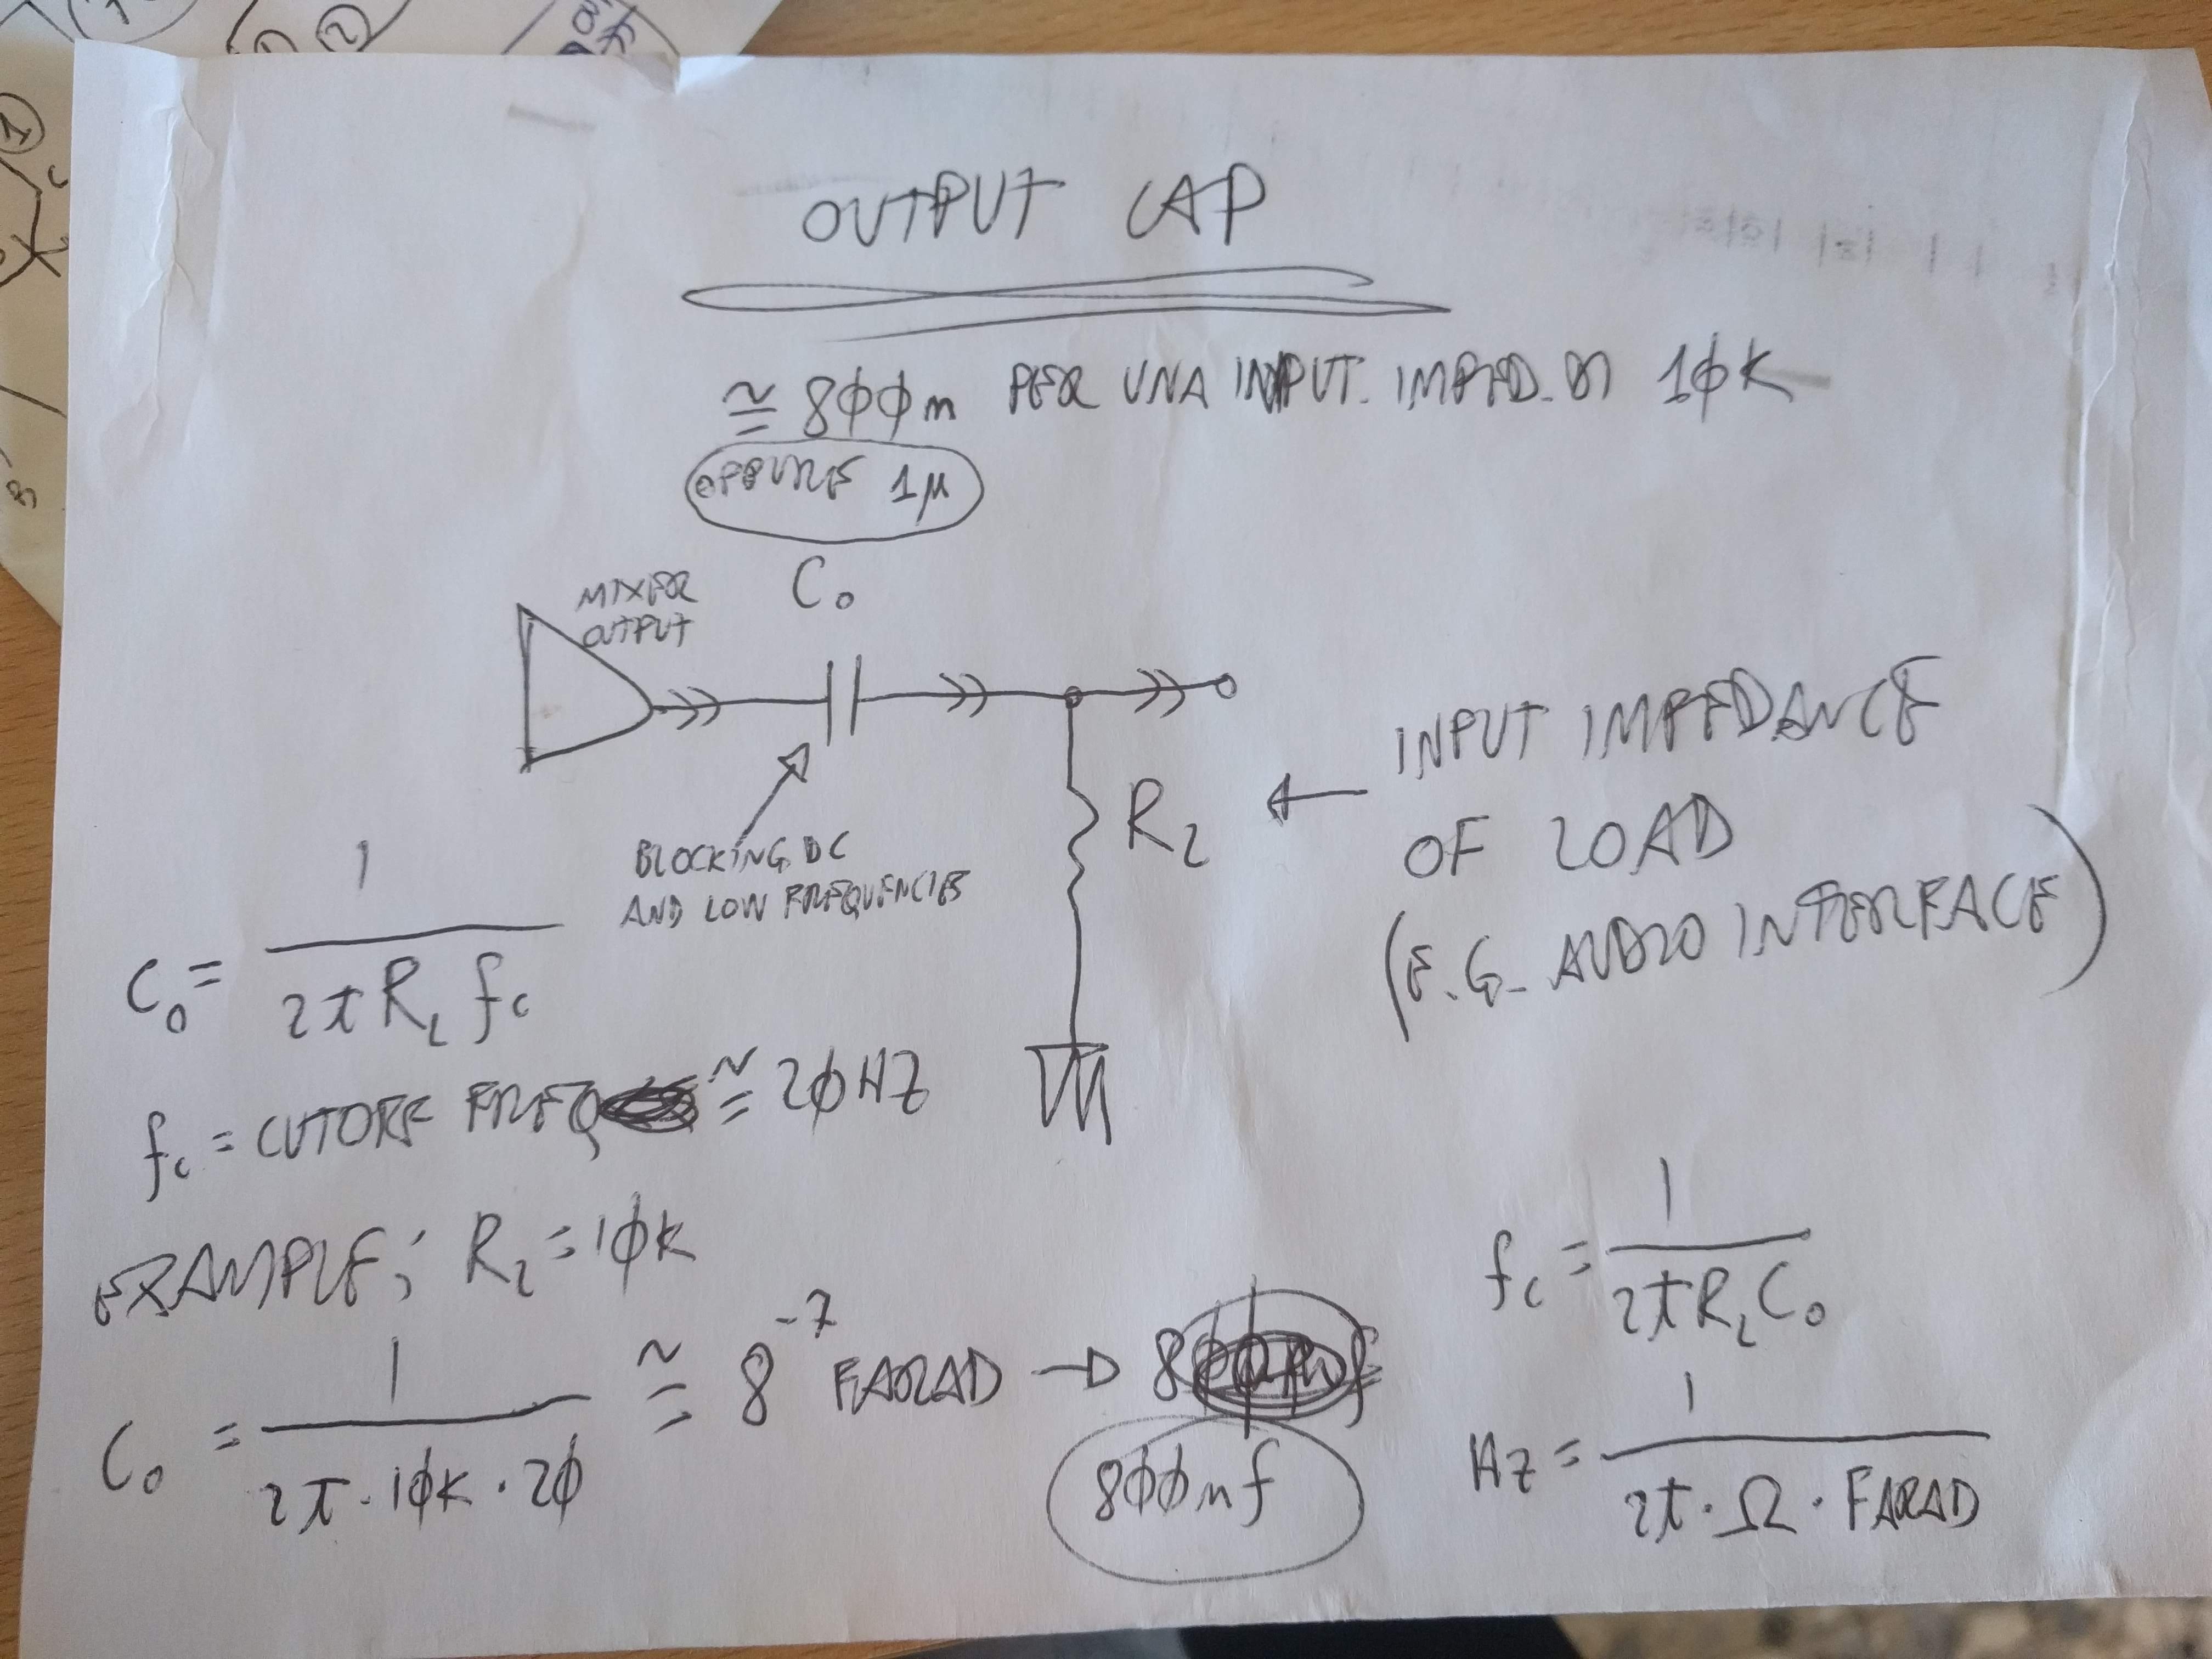 OUTPUT CAP
≅ 8ϕϕn PER UNA INPUT. IMPED. DI 1ϕK
OPPURE 1μ
C₀
MIXER
OUTPUT
BLOCKING DC
AND LOW FREQUENCIES
R_L ← INPUT IMPEDANCE
OF LOAD
(E.G. AUDIO INTERFACE)
C₀ = 1 / 2π R_L f_c
f_c = CUTOFF FREQ ≅ 2ϕHZ
EXAMPLE; R_L = 1ϕK
C₀ = 1 / 2π · 1ϕK · 2ϕ ≅ 8⁻⁷ FARAD → 8ϕϕnf
f_c = 1 / 2π R_L C₀
HZ = 1 / 2π · Ω · FARAD